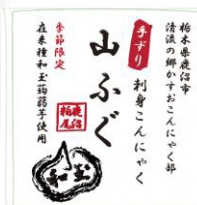 栃木県鹿沼市
清流の郷かすおこんにゃく部
手ずり
刺身こんにゃく
山ふぐ
季節限定
在来種和玉蒟蒻芋使用
鹿沼
粕尾
和玉